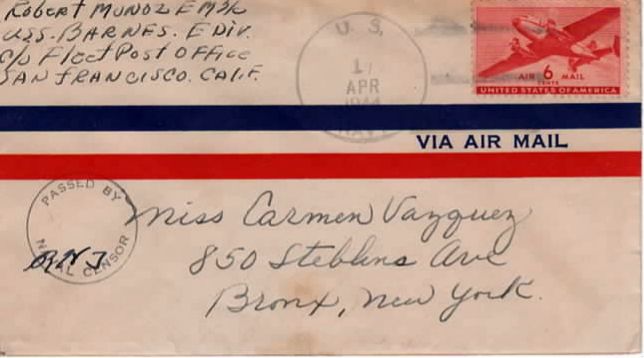 Robert Munoz F M3/c
USS. BARNES. E DIV.
C/o Fleet Post Office
SAN FRANCISCO. CALIF.
U.S.
17
APR
1944
NAVY
AIR 6 MAIL
CENTS
UNITED STATES OF AMERICA
VIA AIR MAIL
PASSED BY
NAVAL CENSOR
Miss Carmen Vazquez
850 Stebbins Ave
Bronx, New York.